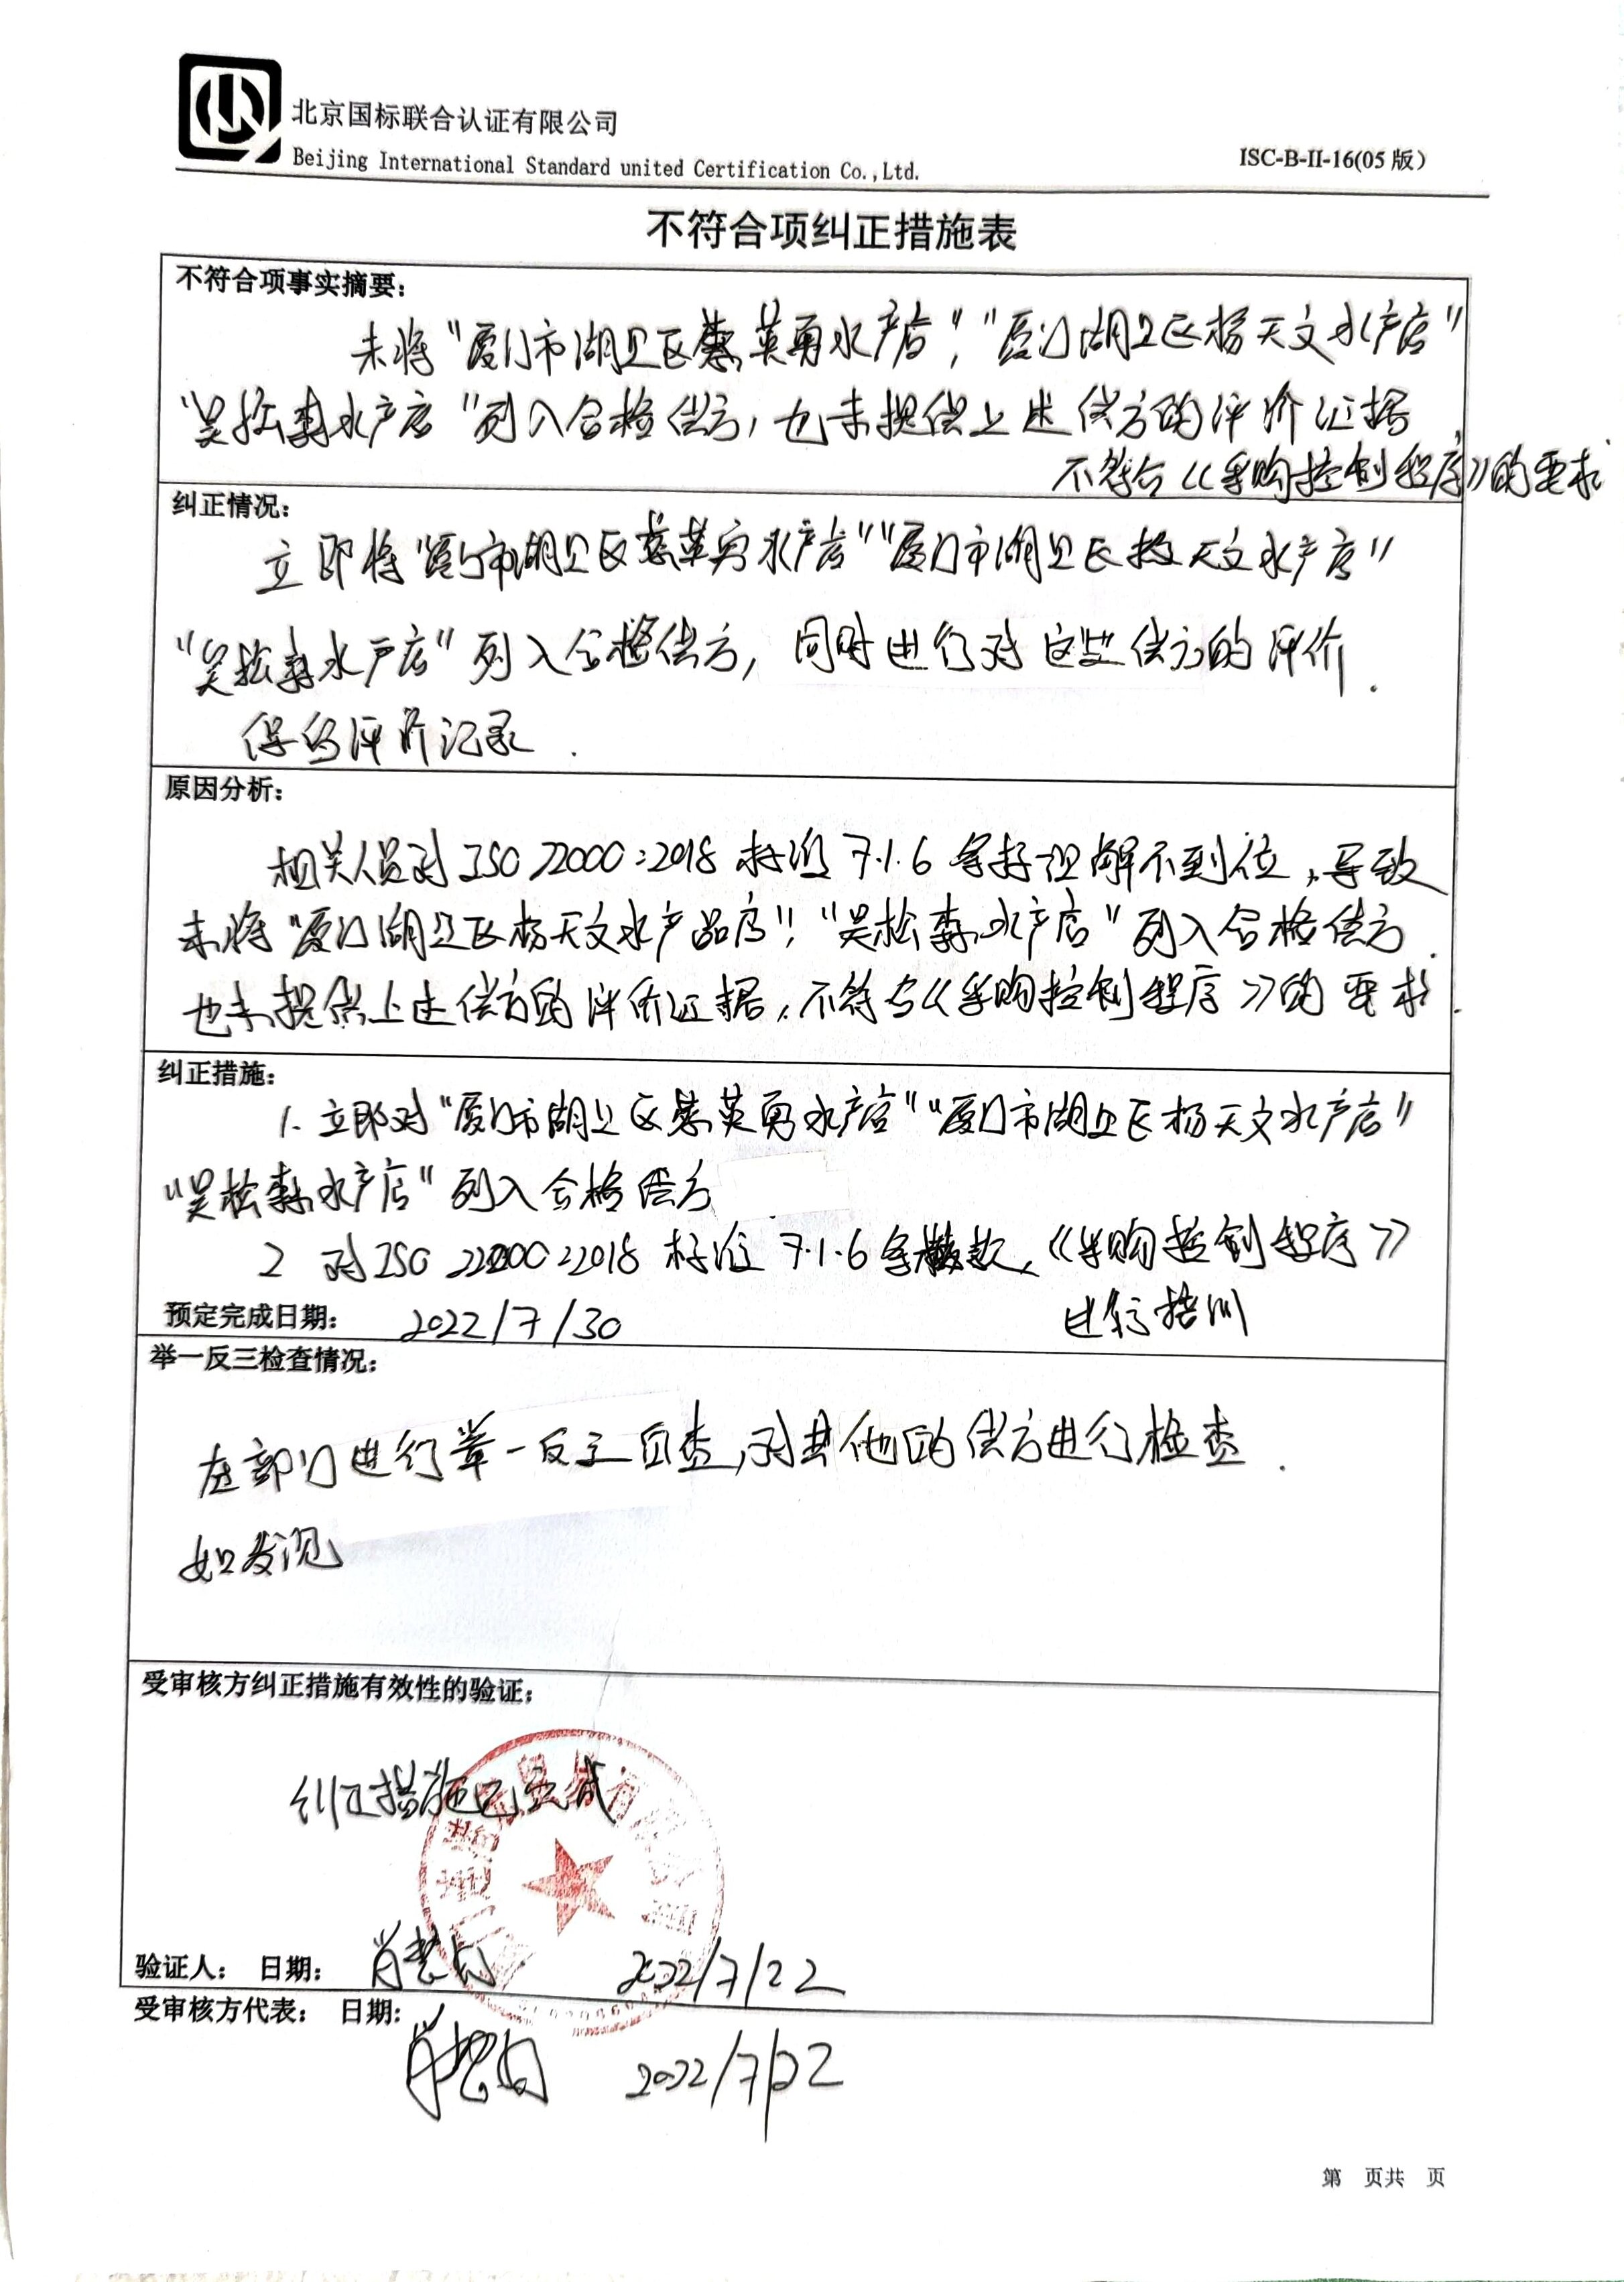 北京国标联合认证有限公司
Beijing International Standard united Certification Co.,Ltd.
ISC-B-II-16(05 版)
不符合项纠正措施表
不符合项事实摘要:
未将“厦门市湖里区蔡英勇水产店”,“厦门湖里区杨天文水产店”
“吴松森水产店”列入合格供方,也未提供上述供方的评价证据,
不符合《采购控制程序》的要求
纠正情况:
立即将“厦门市湖里区蔡英勇水产店”“厦门市湖里区杨天文水产店”
“吴松森水产店”列入合格供方,同时进行对这些供方的评价.
保留评价记录.
原因分析:
相关人员对ISO 22000:2018 标准 7.1.6 条款理解不到位,导致
未将“厦门湖里区杨天文水产品店”,“吴松森水产店”列入合格供方.
也未提供上述供方的评价证据,不符合《采购控制程序》的要求.
纠正措施:
1. 立即对“厦门市湖里区蔡英勇水产店”“厦门市湖里区杨天文水产店”
“吴松森水产店”列入合格供方
2 对ISO 22000:2018 标准 7.1.6 条款,《采购控制程序》
进行培训
预定完成日期: 2022/7/30
举一反三检查情况:
在部门进行举一反三自查,对其他的供方进行检查.
如发现
受审核方纠正措施有效性的验证:
纠正措施已完成
验证人: 日期: 2022/7/22
受审核方代表: 日期: 2022/7/22
第 页共 页